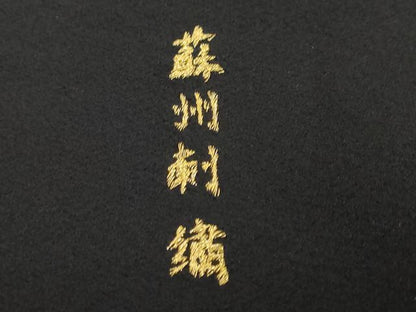 蘇州刺繡